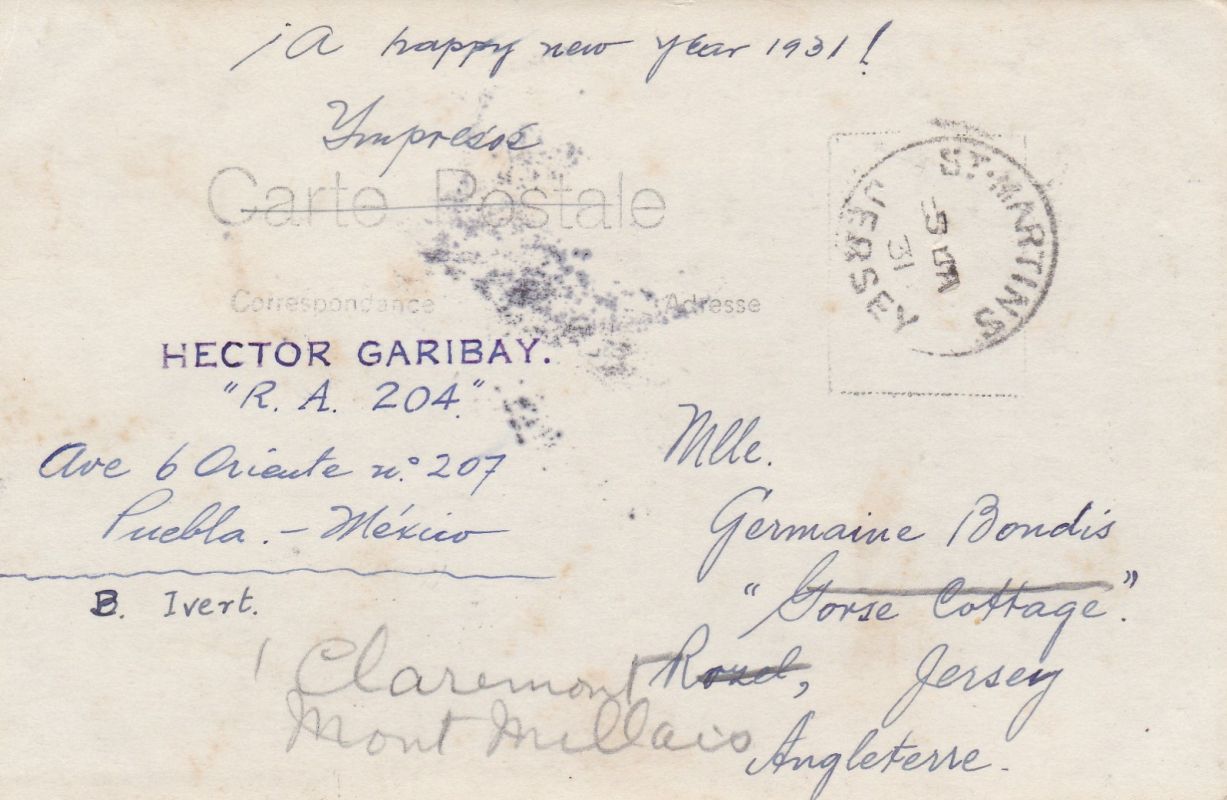 ¡A happy new year 1931!
Ympresos
Carte Postale
Correspondance
Adresse
ST. MARTINS
JERSEY
31
HECTOR GARIBAY.
"R. A. 204."
Ave 6 Oriente n.° 207
Puebla. - México
B. Ivert.
Mlle.
Germaine Bondis
"Gorse Cottage".
Rozel, Jersey
Angleterre.
1 Claremont
Mont Millais